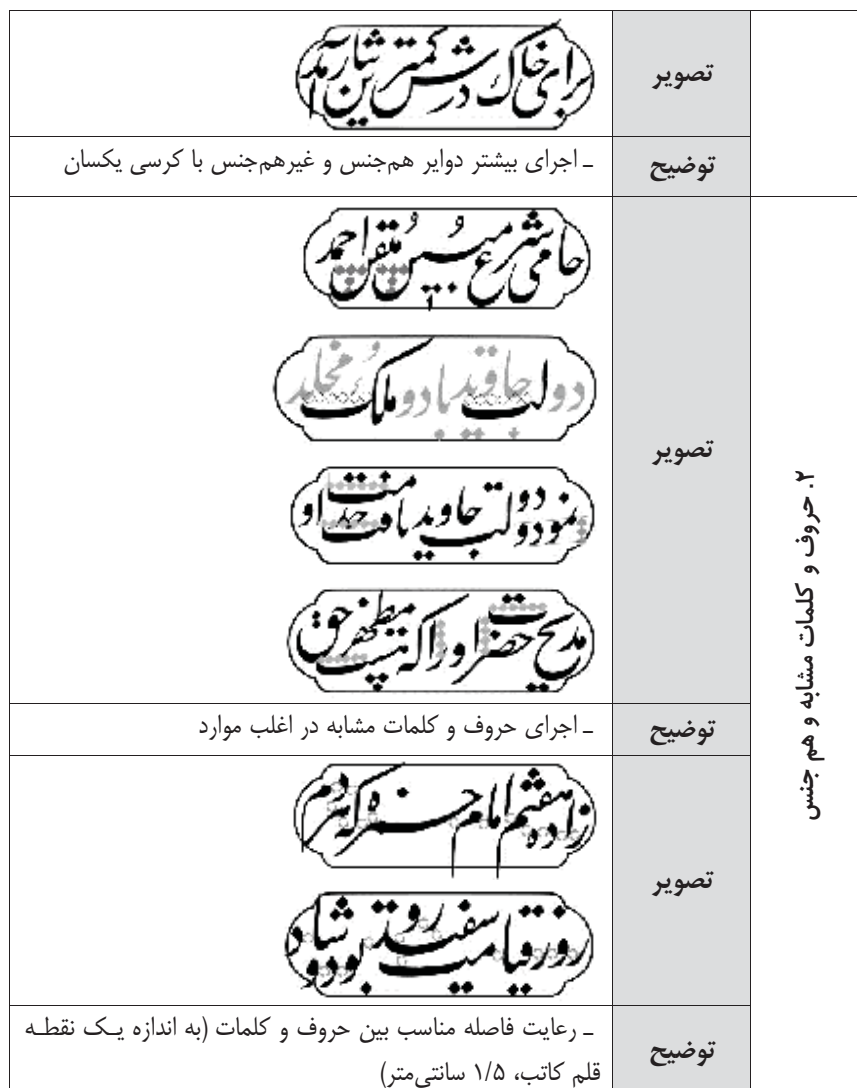 تصویر
برای خاک درش کمترین نثار آمد
توضیح
ـ اجرای بیشتر دوایر هم‌جنس و غیرهم‌جنس با کرسی یکسان
۲. حروف و کلمات مشابه و هم جنس
تصویر
حامی شرع مبین و متقن احمد
دولت جاوید بادو ملک مخلد
نمود دولت جاوید یافت خدمت او
مدیح حضرت او را که نیست مظهر حق
توضیح
ـ اجرای حروف و کلمات مشابه در اغلب موارد
تصویر
زاده هفتم امام حمزه که هر دم
روز قیامت سفید رو بود و شاد
توضیح
ـ رعایت فاصله مناسب بین حروف و کلمات (به اندازه یـک نقطـه
قلم کاتب، ۱/۵ سانتی‌متر)